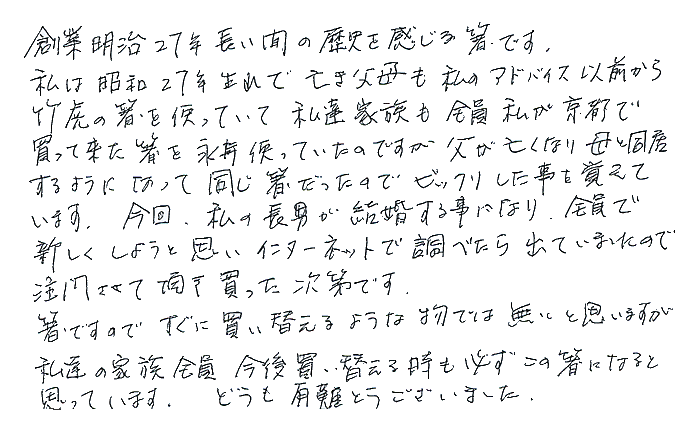 創業明治27年長い間の歴史を感じる箸です.
私は昭和27年生れで亡き父母も私のアドバイス以前から
竹虎の箸を使っていて私達家族も全員私が京都で
買って来た箸を永年使っていたのですが父が亡くなり母と同居
するようになって同じ箸だったのでビックリした事を覚えて
います. 今回、私の長男が結婚する事になり、全員で
新しくしようと思いインターネットで調べたら出ていましたので
注門させて頂き買った次第です.
箸ですのですぐに買い替えるような物では無いと思いますが
私達の家族全員今後買い替える時も必ずこの箸になると
思っています. どうも有難とうございました.